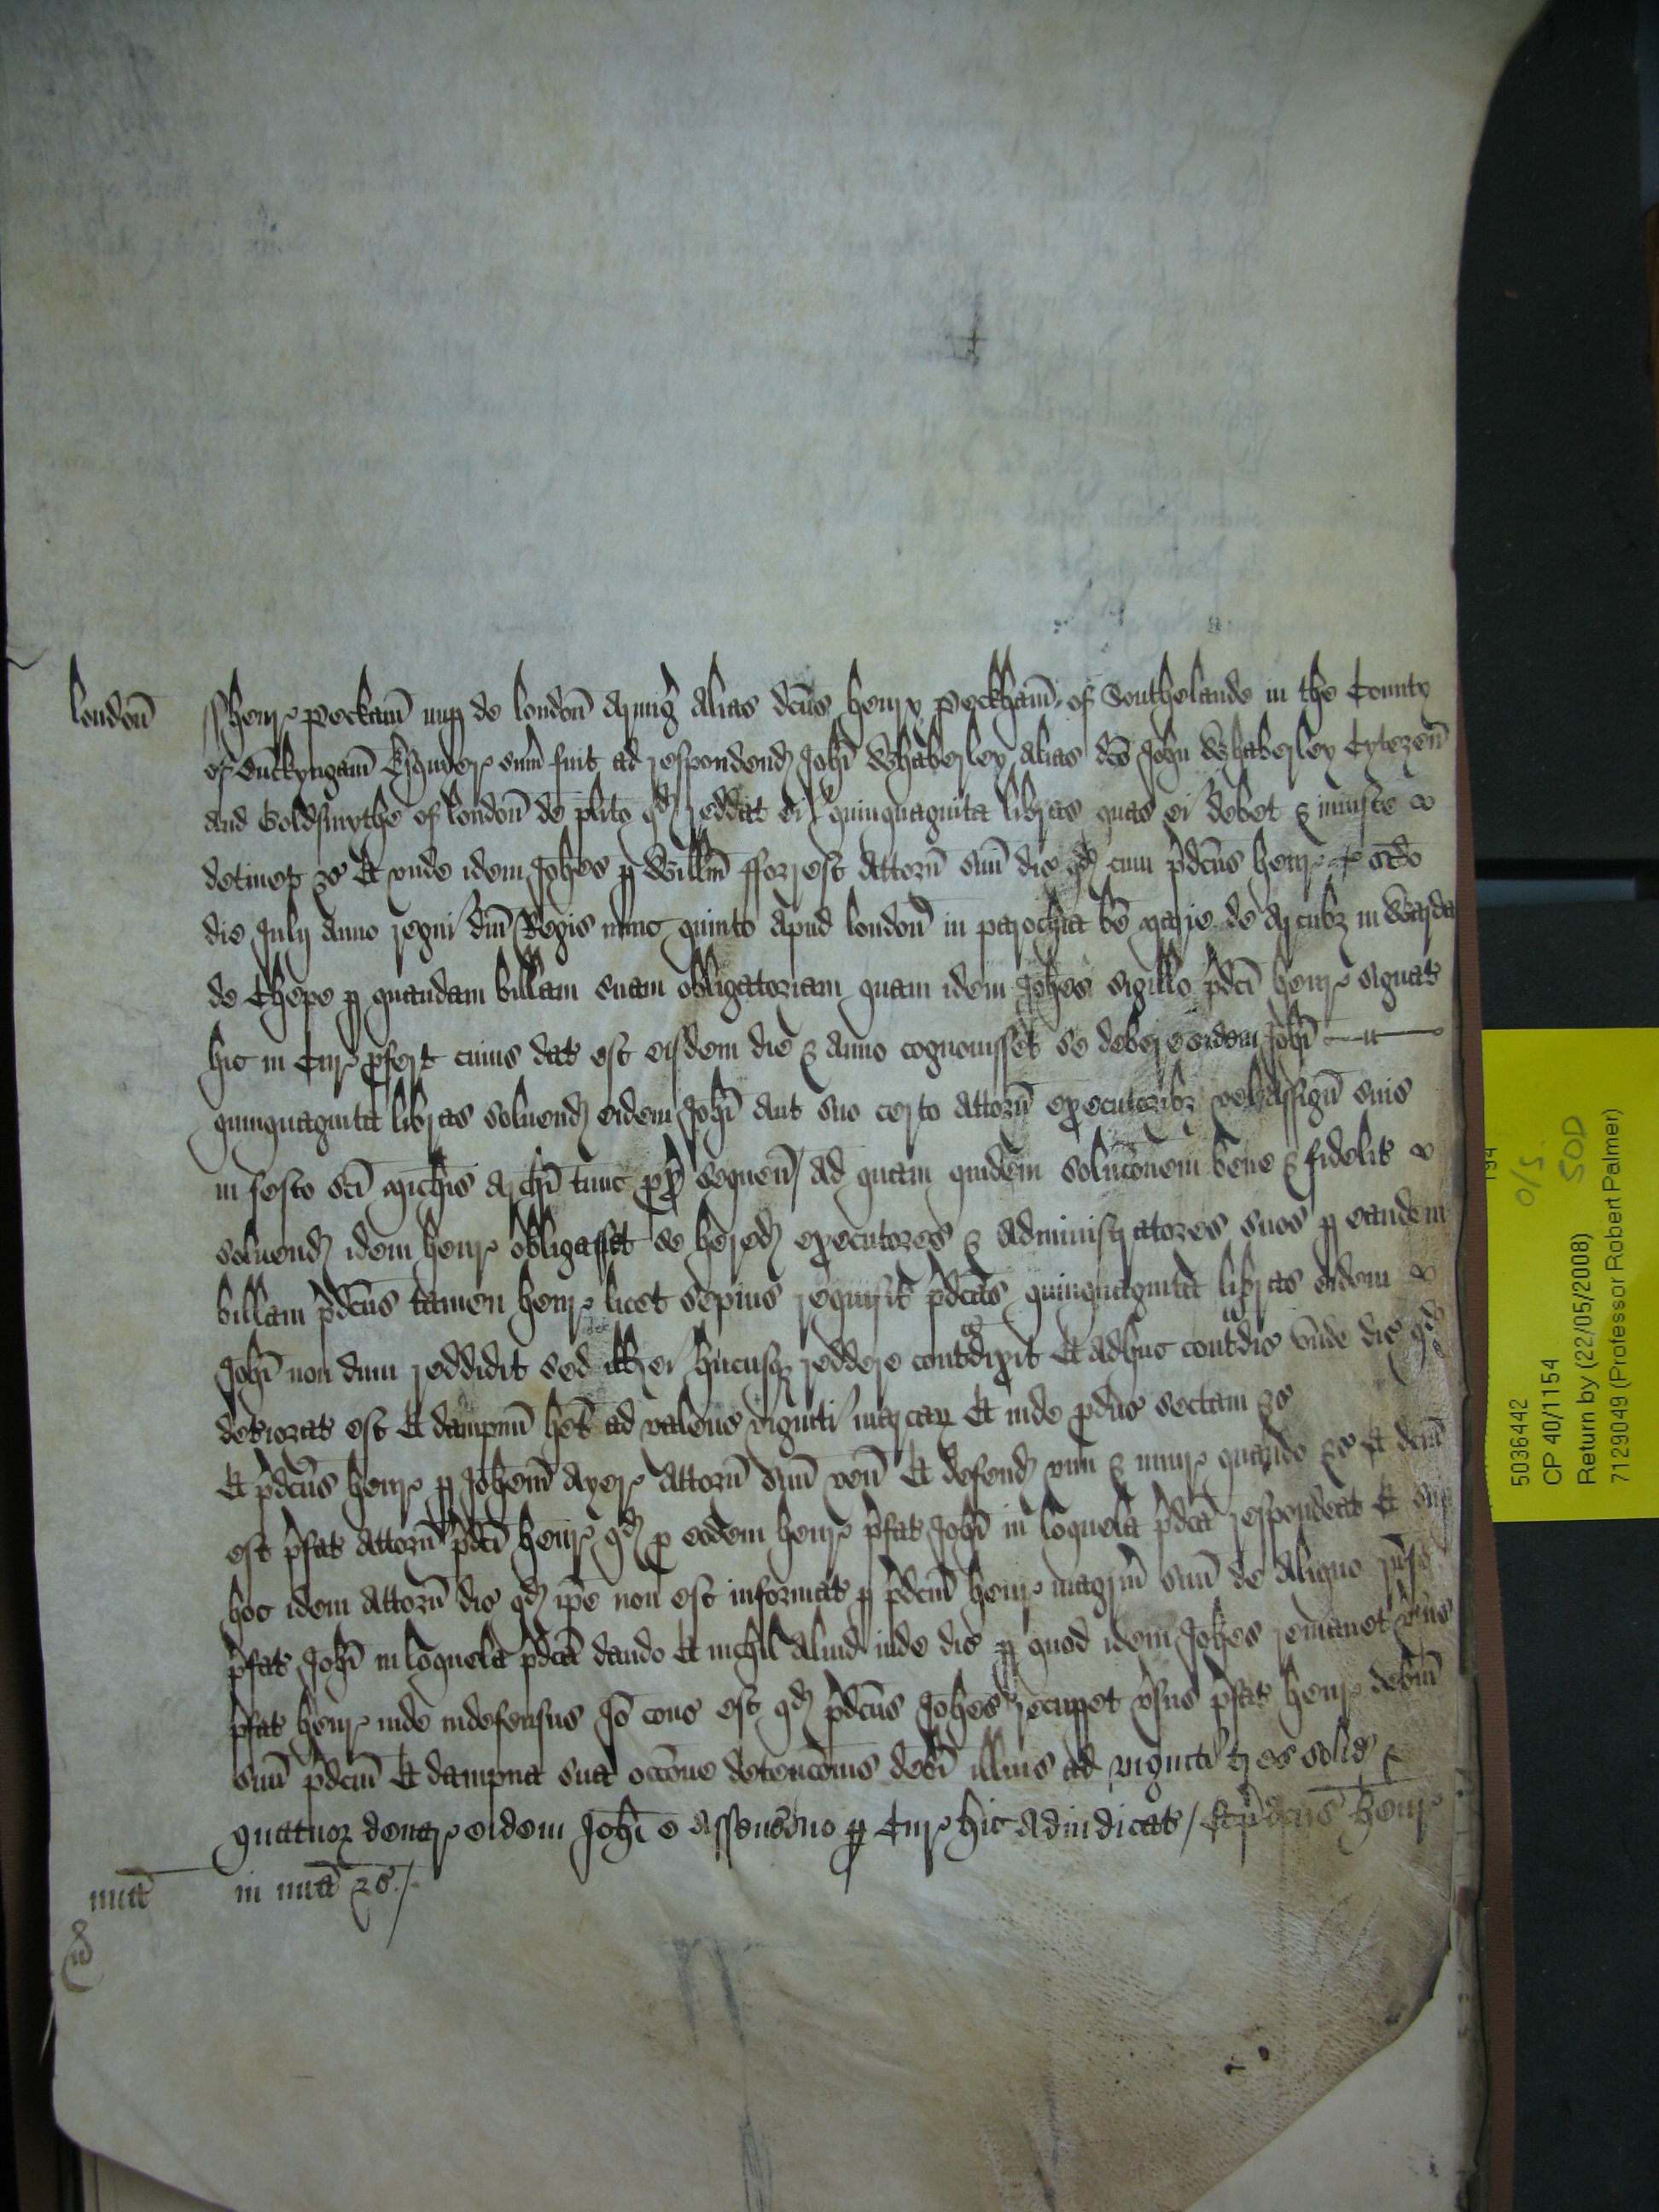 londoñ
Henr peckam̃ nup de londoñ Armig̃ Alias dc̃us henry peckham̃ of Southelande in the County
of Buckyngam̃ Esquyer sum̃ fuit ad respondend Joh̃i Whaberley Alias dc̃o John Whaberley Cytezeñ
And Goldsmythe of londoñ de plito qd reddat ei quinquaginta libras quas ei debet & iniuste
detinet &c Et unde idem Joh̃es p Willm̃ fforrest Attorñ suũ dic qd cum p̃dc̃us henr sc̃do
die Julij Anno regni dñi Regis nunc quinto Apud londoñ in parochia bẽ marie de Arcubz in Warda
de Chepe p quandam billam suam obligatoriam quam idem Joh̃es sigillo p̃dc̃i henr signat
hic in Cur pfert cuius dat est eisdem die & Anno cognouisset se debere eidem Joh̃i
quinquaginta libras soluend eidem Joh̃i Aut suo certo Attorñ executoribz vel Assigñ suis
in festo sc̃i Mich̃is Arch̃i tunc px̃ sequeñ / Ad quam quidem soluc̃onem bene & fidelit
soluend idem henr obligasset se hered executores & Administratores suos p eandem
billam p̃dc̃us tamen henr licet sepius requisit p̃dc̃as quinquaginta libras eidem
Joh̃i non dum reddidit sed ill ei hucusqz reddere cont̃dixit Et adhuc cont̃dic vnde dic qd
deteriorat est Et dampnũ het ad valenc viginti marcar Et inde pduc̃ sectam &c
Et p̃dc̃us henr p Joh̃em Ayer Attorñ suũ veñ Et defend vim & iniur quando &c Et dc̃m
est p̃fat Attorñ p̃dc̃i henr qd p eodem henr p̃fat Joh̃i in loquela p̃dc̃a respondeat Et sup
hoc idem Attorñ dic qd ip̃e non est informat p p̃dc̃m henr magrm̃ suũ de Aliquo rñso
p̃fat Joh̃i in loquela p̃dc̃a dando Et nichil Aliud inde dic p quod idem Joh̃es remanet vsus
p̃fat henr inde indefensus Iõ cons est qd p̃dc̃us Joh̃es recupet vsus p̃fat henr debitũ
suũ p̃dc̃m Et dampna sua occ̃one detenc̃onis debĩ illius ad viginti tres solid &
quatuor denar eidem Joh̃i ex Assensu suo p Cur hic Adiudicat / Et p̃dc̃us henr
mĩa in mĩa &c /
5036442
CP 40/1154
Return by (22/05/2008)
7129049 (Professor Robert Palmer)
O/S.
SOD